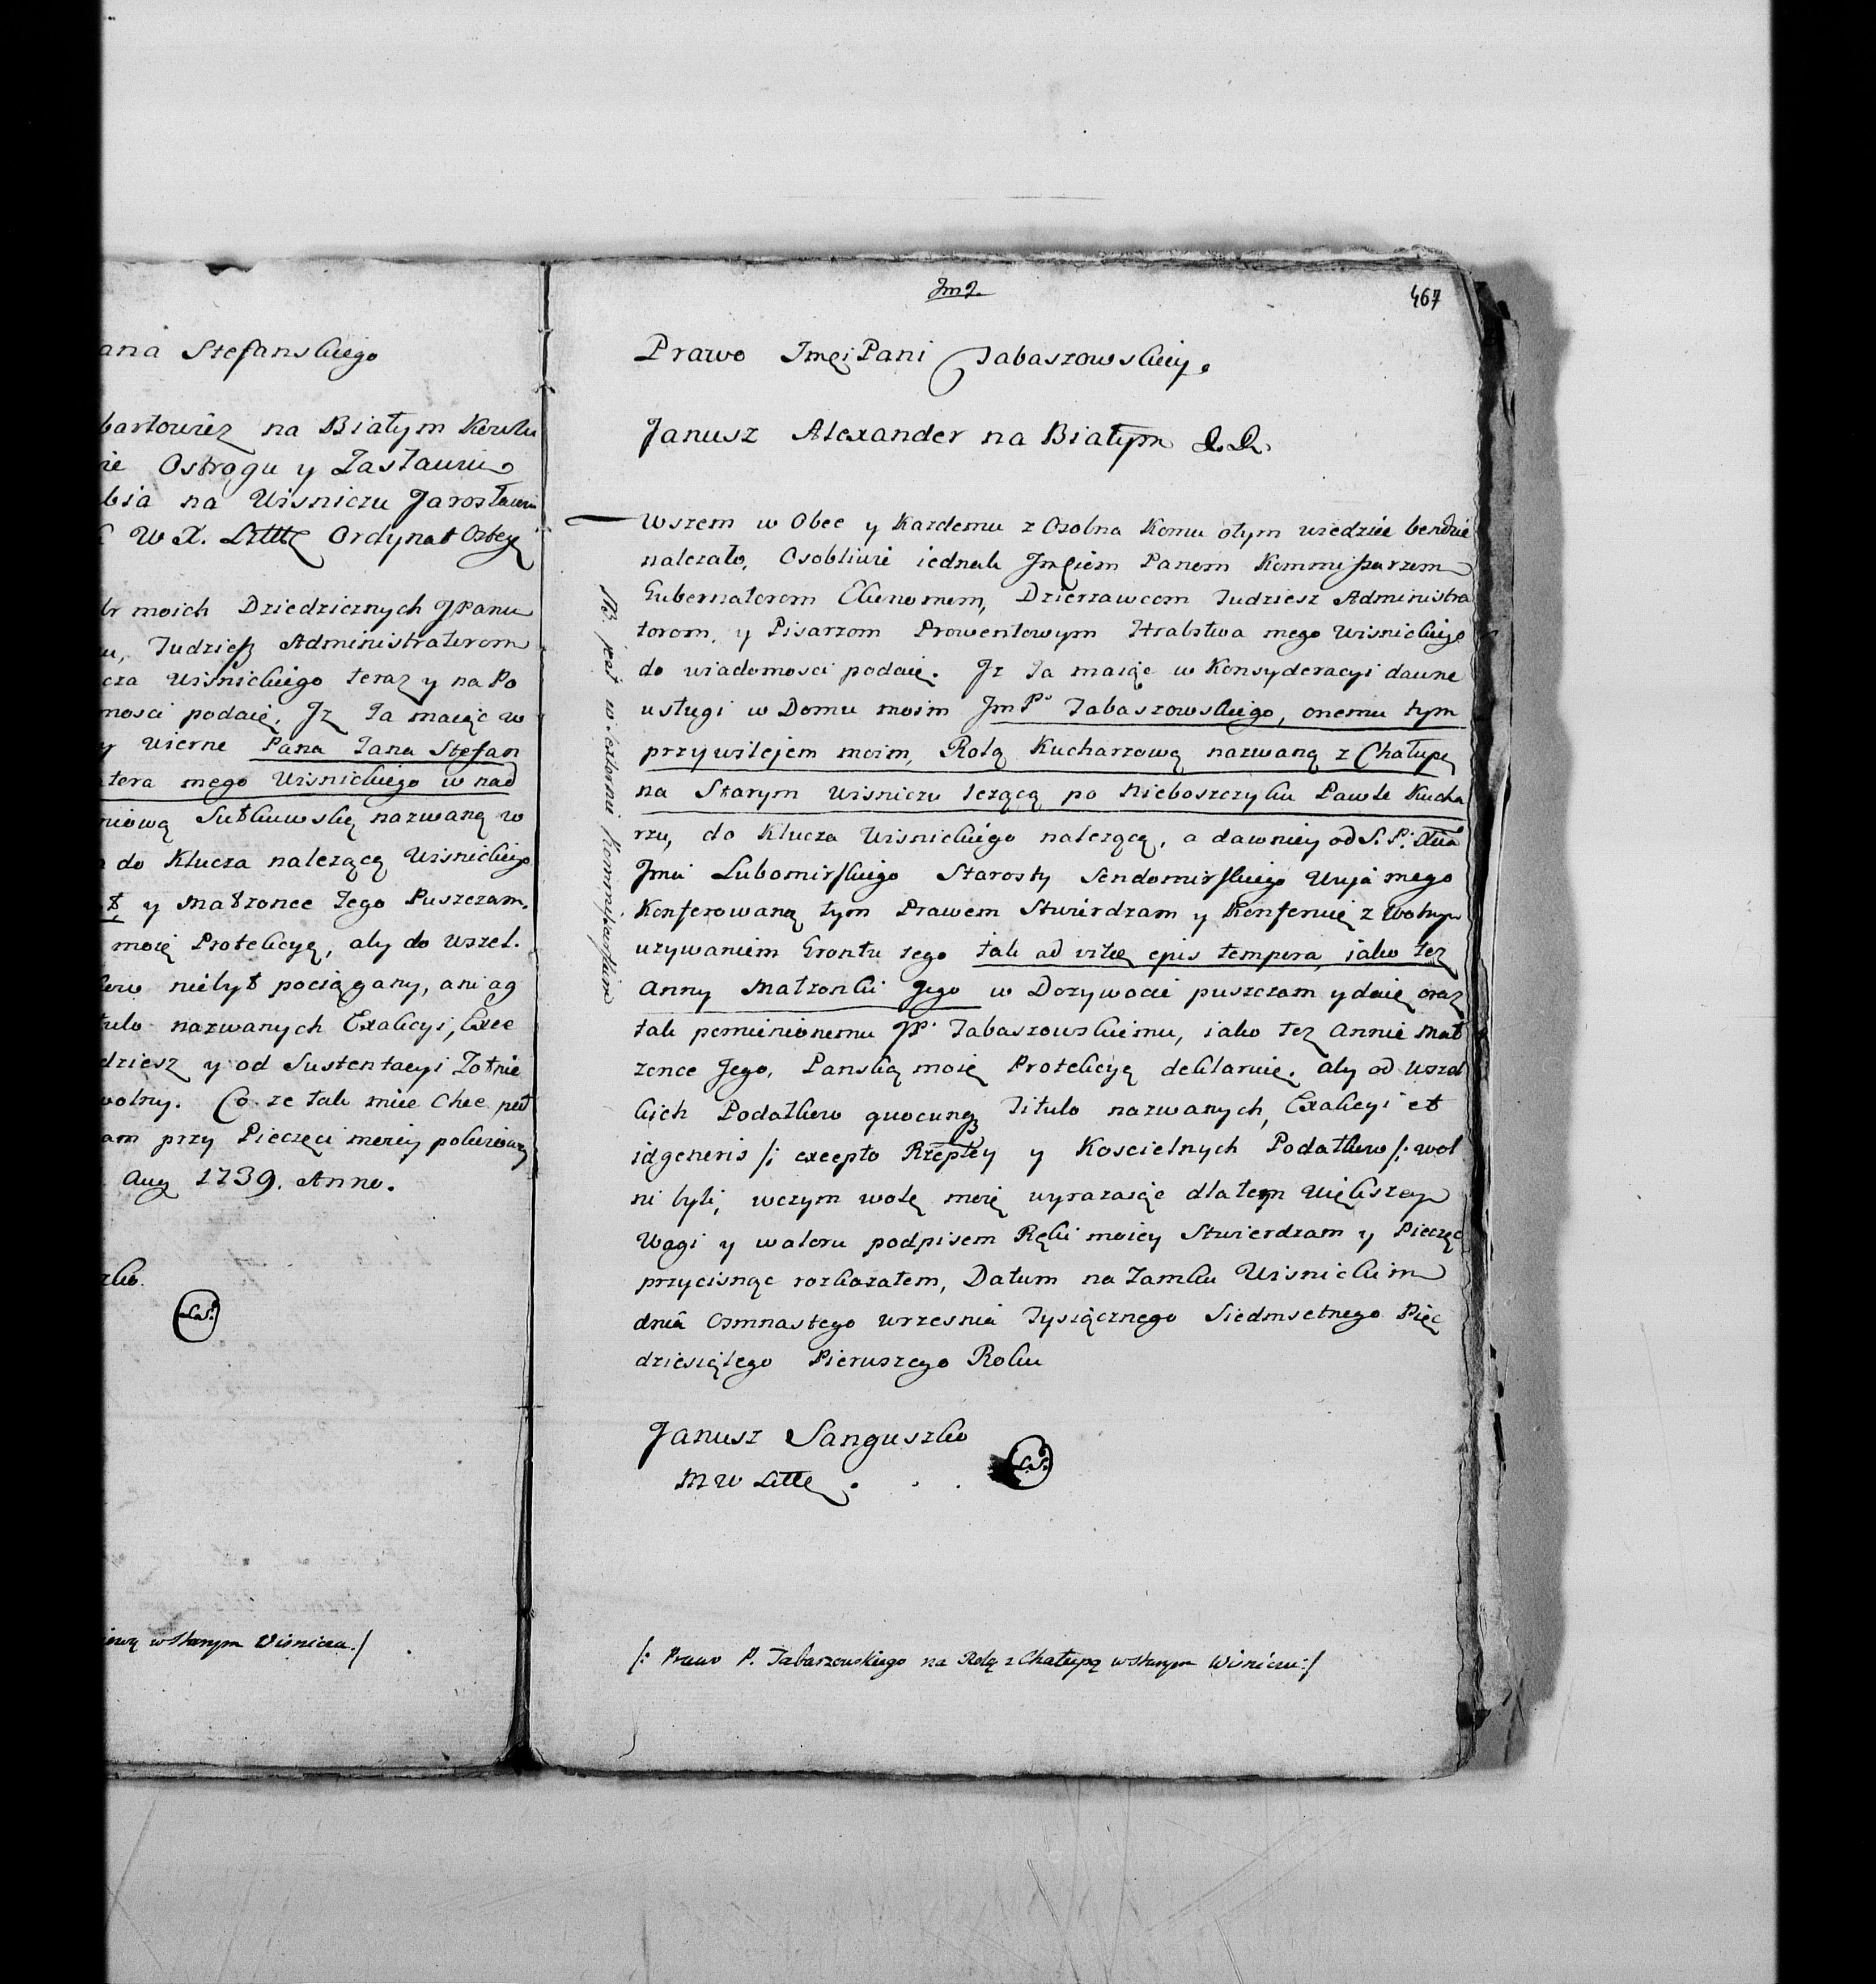 ana Stefanskiego
bartowicz na Białym Kowlu
ie Ostrogu y Zasławiu
bia na Wisniczu Jarosławiu
W X. Litt Ordynat Ostrg
moich Dziedzicznych JPanu
u, Tudziesz Administratorom
cza Wisnickiego teraz y na Po
mosci podaię, Iz Ja maiąc w
y wierne Pana Jana Stefan
atora mego Wisnickiego w nad
niową Sutkuwską nazwaną w
do Klucza nalezącą Wisnickiego
y Małzonce Jego Puszczam.
moię Protekcyą, aby do wszel.
kow niebył pociągany, ani ag
tulo nazwanych Exakcyi, Exce
dziesz y od Sustentacyi Zołnie
wolny. Co ze tak miec Chcę pod
am przy Pieczęci moiey
Aug 1739. Anno.
zko.
L.S.
iową w Starym Wisniczu./

Jm 2.
467
Prawo Jmci Pani Tabaszowskiey.
Janusz Alexander na Białym &.&.
Wszem w Obec y Kazdemu z Osobna Komu otym wiedziec bendzie
nalezało, Osobliwie iednak Jmciom Panom Kommissarzom
Gubernatorom Ekonomom, Dzierzawcom Tudziesz Administra
torom, y Pisarzom Prowentowym Hrabstwa mego Wisnickiego
do wiadomosci podaię. Iz Ja maiąc w Konsyderacyi dawne
usługi w Domu moim Jm Pa Tabaszowskiego, onemu tym
przywilejem moim, Rolą Kucharzową nazwaną z Chałupą
na Starym Wisniczu lezącą po Nieboszczyku Pawle Kucha
rzu, do Klucza Wisnickiego nalezącą, a dawniey od S. P. Xcia
Jmci Lubomirskiego Starosty Sendomirskiego Wuja mego
Konferowaną tym Prawem Stwierdzam y Konferuię z Wolnym
uzywaniem Gruntu tego tak ad vitæ epis tempora, iako tez
Anny Małzonki Jego w Dozywocie puszczam y daię oraz
tak pomienionemu JP. Tabaszowskiemu, iako tez Annie Mał
zonce Jego, Panską moię Protekcyą deklaruię. aby od wszel
kich Podatkow quocunq Titulo nazwanych, Exakcyi et
idgeneris /: excepto Rzeptey y Koscielnych Podatkow /: wol
ni byli, wczym wolę moię wyrazaiąc dla tem Większey
Wagi y waloru podpisem Ręki moiey Stwierdzam y Pieczęc
przycisnąc rozkazałem, Datum na Zamku Wisnickim
dnia Osmnastego wrzesnia Tysiącznego Siedmsetnego Pięc
dziesiątego Pierwszego Roku
Janusz Sanguszko
M W Litt
L.S.
/: Prawo P. Tabaszowskiego na Rolą z Chałupą w Starym Wisniczu :/
NB. jest w Extorni Kommissarskim